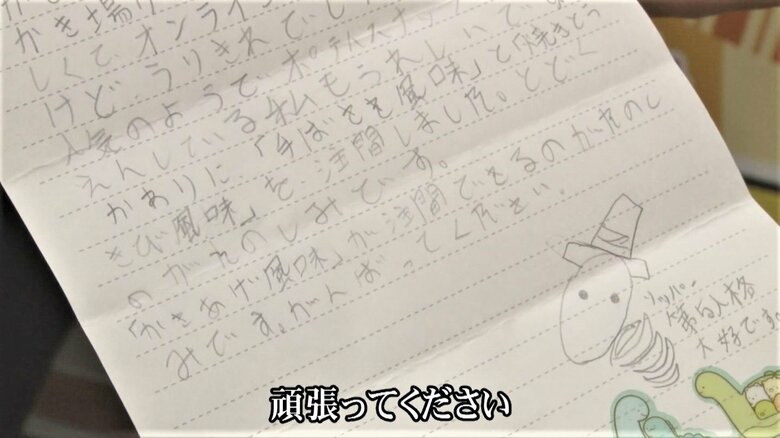 かき場
しくてオンライ
けどうりきれでし
人気のようで
えんしている私もうれしいで
かありに「手ばさき風味」と「焼きとう
きび風味」を注間しました。とどく
のがたのしみです。
「かきあげ風味」が注間できるのがたのし
みです。がんばってください。
リッパー
人格
大好です
頑張ってください